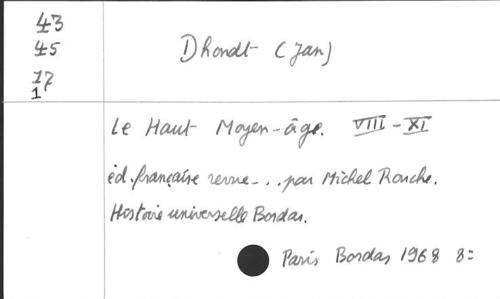 43
45
17
1
Dhondt (Jan)
Le Haut Moyen-âge. VIII - XI
éd. française revue... par Michel Rouche.
Histoire universelle Bordas.
Paris Bordas 1968 8=